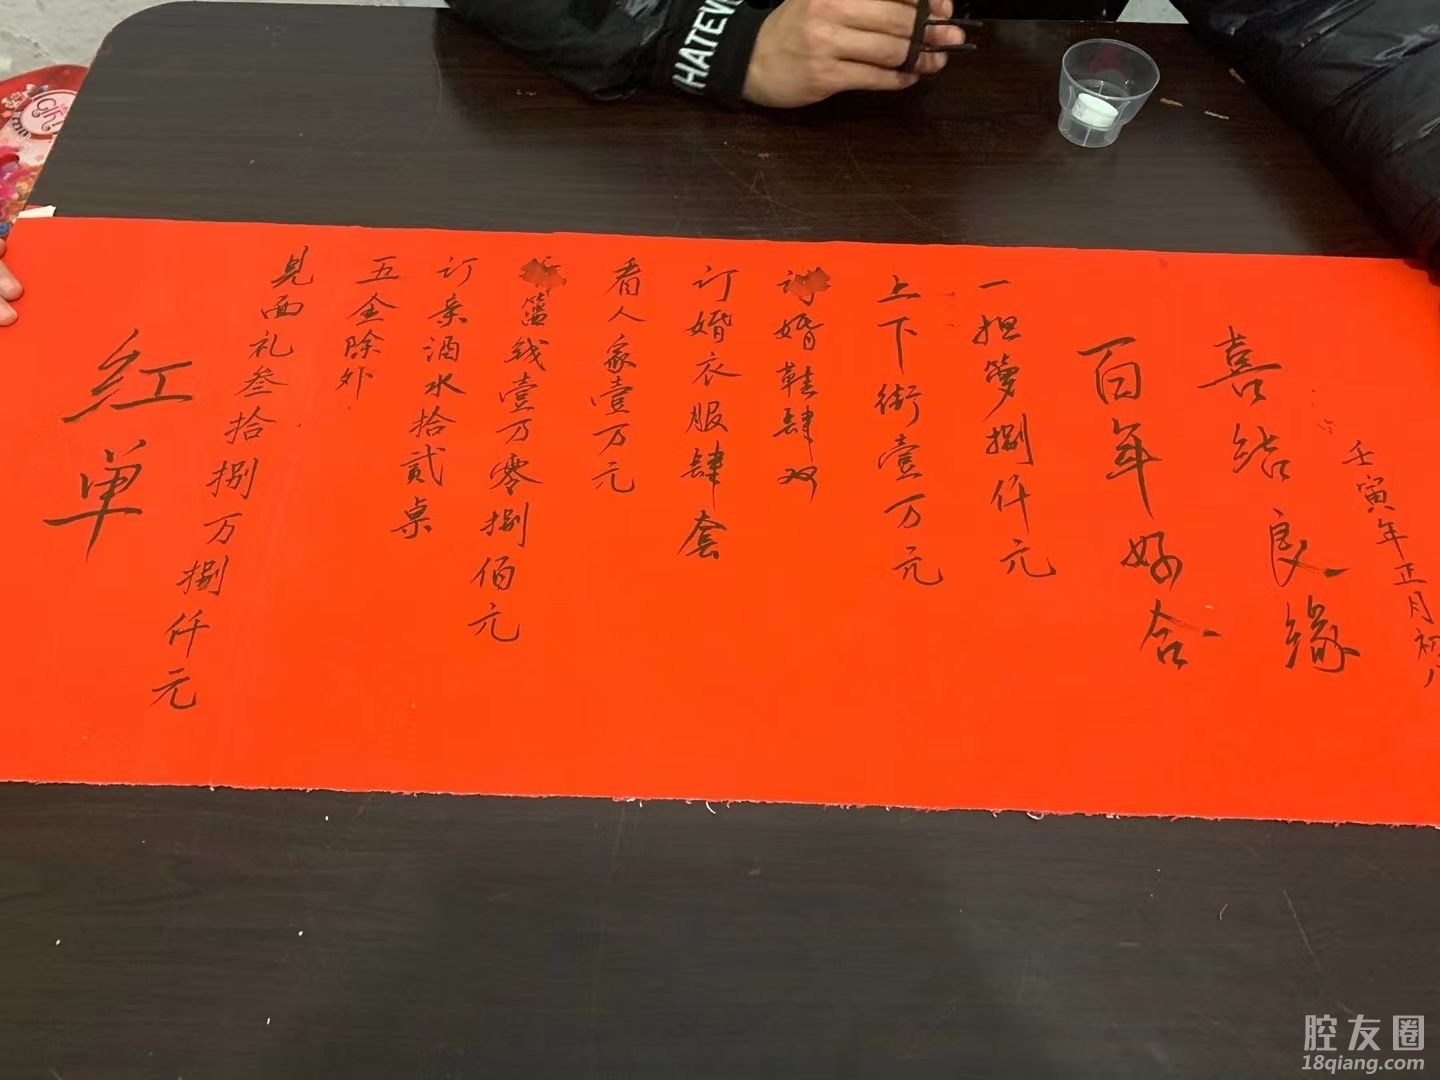 红单
见面礼叁拾捌万捌仟元
五金除外
订亲酒水拾贰桌
篮钱壹万零捌佰元
看人家壹万元
订婚衣服肆套
订婚鞋肆双
上下街壹万元
一担箩捌仟元
百年好合
喜结良缘
壬寅年正月初八
HATEV
Gift
腔友圈
18qiang.com